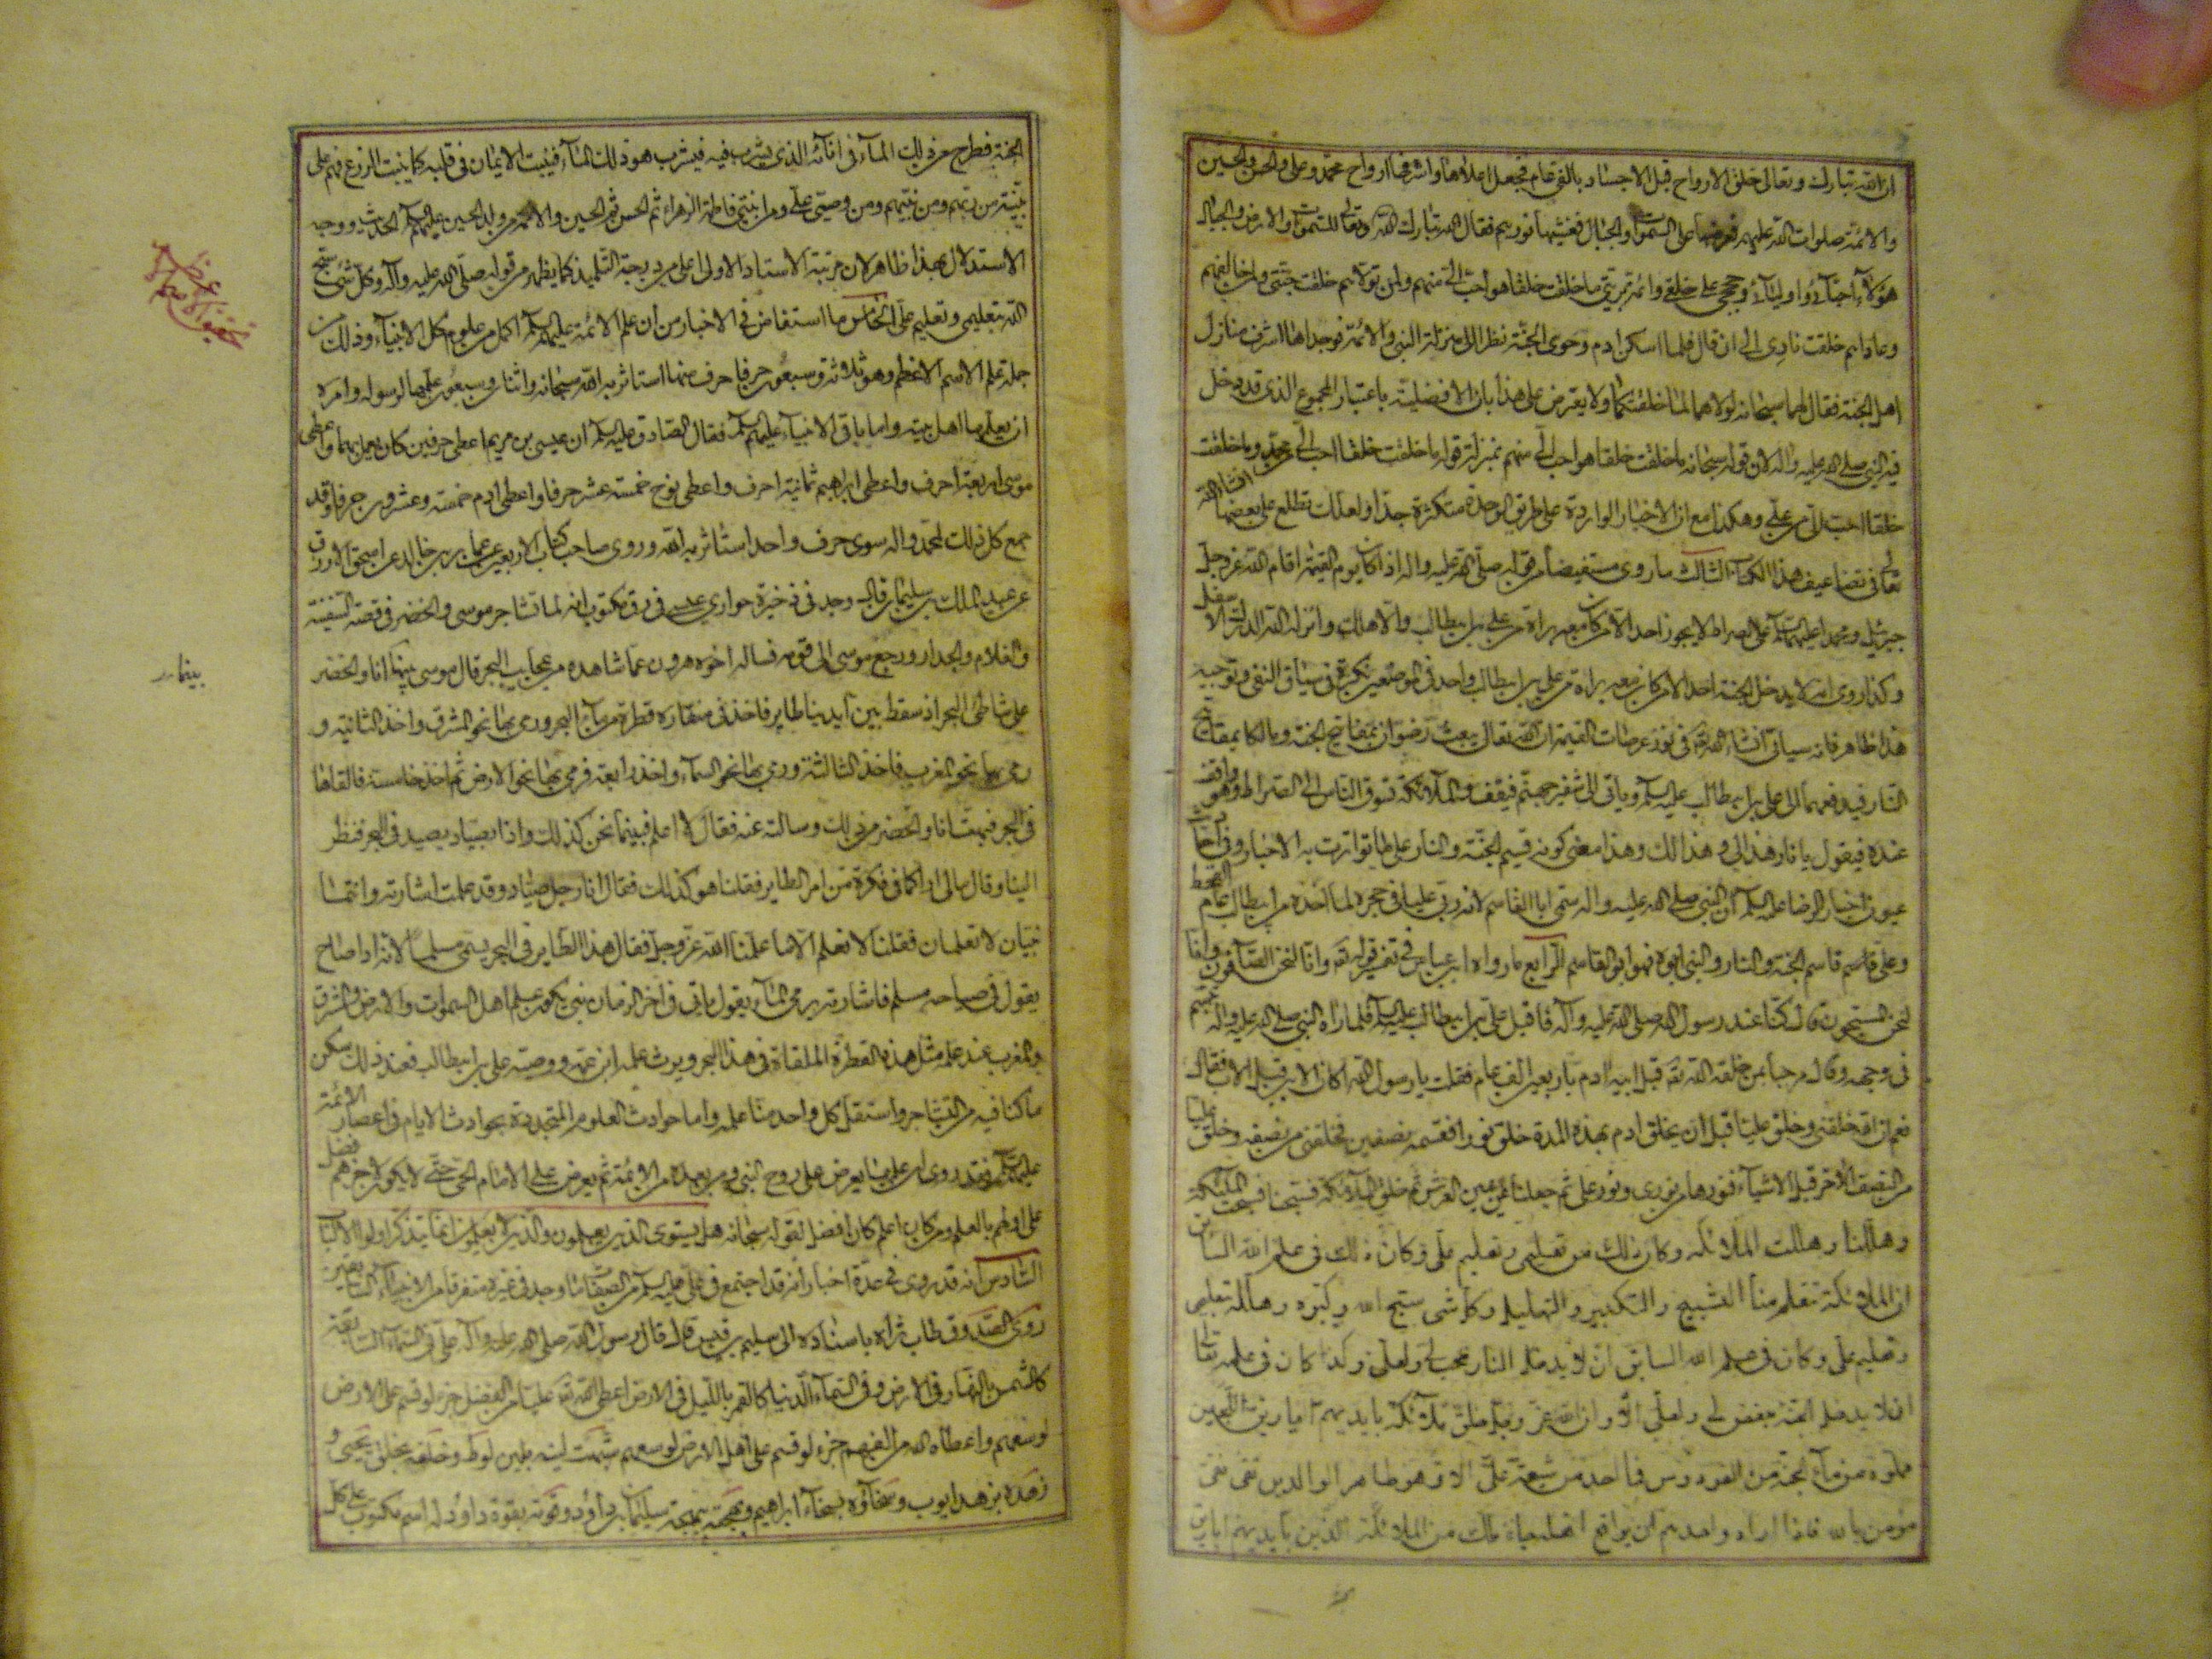 ان الله تبارك وتعالى خلق الارواح قبل الاجساد بالفي عام فجعل اعلاها واشرفها ارواح محمد وعلى والحسن والحسين
والائمة صلوات الله عليهم فعرضها على السموات والجبال فغشيها نورهم فقال الله تبارك وتعالى للسموات والارض والجبال
هؤلاء احبائى واوليائى وحججى على خلقى وائمة بريتى ما خلقت خلقا هو احب الى منهم ولمن تولاهم خلقت جنتى ولمن خالفهم
وعاداهم خلقت نارى الى ان قال فلما اسكن ادم وحوى الجنة نظرا الى منزلة النبى والائمة فوجداها اشرف منازل
اهل الجنة فقال لهما سبحانه لولاهما لما خلقتكما ولا يعترض على هذا بان الافضلية باعتبار المجموع الذى قد دخل
فيه النبى صلى الله عليه واله لان قوله سبحانه ما خلقت خلقا هو احب الى منهم بمنزلة قوله ما خلقت خلقا احب الى من محمد وما خلقت
خلقا احب الى من على وهكذا مع ان الاخبار الواردة على طريق الوحدة متكثرة جدا ولعلك تطلع على بعضها انشاء الله
تعالى فى تضاعيف هذا الكتاب الثالث ما روى مستفيضا من قوله صلى الله عليه واله اذا كان يوم القيمة اقام الله عز وجل
جبرئيل ومحمدا عليهما السلام على الصراط لا يجوز احد الا من كان معه براة من على بن ابيطالب والا هلك وانزله الله الدرك الاسفل
وكذا روى انه لا يدخل الجنة احد الا من كان معه براة من على بن ابيطالب واحد فى الموضعين نكرة فى سياق النفى وتوجيه
هذا ظاهر فانه سياتى انشاء الله تعالى فى نور عرصات القيمة ان الله تعالى يبعث رضوان بمفاتيح الجنة ومالكا بمفاتيح
النار فيدفعهما الى على بن ابيطالب عليه السلام وياتى الى شفير جهنم فيقف والملائكة تسوق الناس الى الصراط وهو واقف
عنده فيقول يا نار هذا لى وهذا لك وهذا معنى كونه قسيم الجنة والنار على ما تواترت به الاخبار وفى كتاب
عيون اخبار الرضا عليه السلام ان النبى صلى الله عليه واله سمى ابا القاسم لانه ربى عليا فى حجره لما اخذه من ابيطالب عام القحط
وعلى قاسم قاسم الجنة والنار والنبى ابوه فهو ابو القاسم الرابع ما رواه ابن عباس فى تفسير قوله تعالى وانا لنحن الصافون وانا
لنحن المسبحون قال كنا عند رسول الله صلى الله عليه وآله فاقبل على بن ابيطالب عليه السلام فلما راه النبى صلى الله عليه واله تبسم
فى وجهه وقال مرحبا بمن خلقه الله تعالى قبل ابيه ادم باربعين الف عام فقلت يا رسول الله اكان الابن قبل الاب فقال
نعم ان الله خلقنى وخلق عليا قبل ان يخلق ادم بهذه المدة خلق نورا فقسمه نصفين فخلقنى من نصفه وخلق عليا
من النصف الاخر قبل الاشياء فنورها من نورى ونور على ثم جعلنا عن يمين العرش ثم خلق الملائكة فسبحنا فسبحت الملئكة
وهللنا وهللت الملائكة وكان ذلك من تعليمى وتعليم على وكان ذلك فى علم الله السابق
ان الملائكة تتعلم منا التسبيح والتكبير والتهليل وكل شى سبح الله وكبره وهلله بتعليمى
وتعليم على وكان فى علم الله السابق ان لا يدخل النار محب لى ولعلى وكذا كان فى علمه تعالى
ان لا يدخل الجنة مبغض لى ولعلى الا وان الله عز وجل خلق ملائكة بايديهم اباريق اللجين
مملوة من ماء الجنة من الفردوس فما احد من شيعة على الا وهو طاهر الوالدين تقى نقى
مؤمن بالله فاذا اراد واحدهم ان يواقع اهله جاء ملك من الملائكة الذين بايديهم اباريق
الجنة فطرح من ذلك الماء فى انائه الذى يشرب فيه فيشرب هو ذلك الماء فينبت الايمان فى قلبه كما ينبت الزرع فهم على
بينة من ربهم ومن نبيهم ومن وصيى على ومن ابنتى فاطمة الزهراء ثم الحسن ثم الحسين والائمة من ولد الحسين عليهم السلام الحديث ووجه
الاستدلال بهذا ظاهر لان مرتبة الاستاد الاولى اعلى من درجة التلميذ كما يظهر من قوله صلى الله عليه وآله وكل شئ سبح
الله بتعليمى وتعليم على الخامس ما استفاض فى الاخبار من ان علم الائمة عليهم السلام اكمل من علوم كل الانبياء وذلك ان من
جملته علم الاسم الاعظم وهو ثلاثة وسبعون حرفا حرف منها استاثر به الله سبحانه واثنان وسبعون علمها لرسوله وامره
ان يعلمها اهل بيته واما باقى الانبياء عليهم السلام فقال الصادق عليه السلام ان عيسى بن مريم اعطى حرفين كان يعمل بهما واعطى
موسى اربعة احرف واعطى ابراهيم ثمانية احرف واعطى نوح خمسة عشر حرفا واعطى ادم خمسة وعشرون حرفا وقد
جمع كل ذلك لمحمد واله سوى حرف واحد استاثر به الله وروى صاحب كتاب الاربعين عن عمار بن خالد عن اسحق الازرق
عن عبد الملك بن سليمان قال وجد فى ذخيرة حوارى عيسى فى رق مكتوب انه لما تشاجر موسى والخضر فى قصة السفينة
والغلام والجدار ورجع موسى الى قومه فساله اخوه هرون عما شاهده من عجايب البحر قال موسى بينما انا والخضر
على شاطئ البحر اذ سقط بين ايدينا طاير فاخذ فى منقاره قطرة من ماء البحر ورمى بها نحو المشرق واخذ الثانية و
رمى بها نحو المغرب فاخذ الثالثة ورمى بها نحو السماء واخذ رابعة فرمى بها نحو الارض ثم اخذ خامسة فالقاها
فى البحر فبهت انا والخضر من ذلك وسالته عنه فقال لا اعلم فبينما نحن كذلك واذا بصياد يصيد فى البحر فنظر
الينا وقال مالى اراكما فى فكرة من امر الطاير فقلنا هو كذلك فقال انا رجل صياد وقد علمت اشارته وانتما
نبيان لا تعلمان فقلنا لا نعلم الا ما علمنا الله عز وجل فقال هذا الطاير فى البحر يسمى مسلما لانه اذا صاح
يقول فى صياحه مسلم فاشارته برمى الماء يقول ياتى فى اخر الزمان نبى يكون علم اهل السموات والارض والمشرق
والمغرب عند علمه مثل هذه القطرة الملقاة فى هذا البحر ويرث علمه ابن عمه ووصيه على بن ابيطالب فعند ذلك سكن
ما كنا فيه من التشاجر واستقل كل واحد منا علمه واما حوادث العلوم المتجددة بحوادث الايام فى اعصار الائمة
عليهم السلام فقد روى ان علمها يعرض على روح النبى ومن بعده من الائمة ثم يعرض على الامام الحى حتى لا يكون لاخرهم فضل
على اولهم بالعلم ومن كان اعلم كان افضل لقوله سبحانه هل يستوى الذين يعلمون والذين لا يعلمون انما يتذكر اولوا الالباب
السادس انه قد روى فى عدة اخبار انه قد اجتمع فى على عليه السلام من الصفات ما وجد فى غيره متفرقا من الانبياء
روى الصدوق طاب ثراه باسناده الى سليم بن قيس قال قال رسول الله صلى الله عليه وآله على فى السماء السابعة
كالشمس بالنهار فى الارض وفى السماء الدنيا كالقمر بالليل فى الارض اعطى الله تعالى عليا من الفضل جزء لو قسم على الارض
لوسعهم واعطاه الله من الفهم جزء لو قسم على اهل الارض لوسعهم شبهت لينه بلين لوط وخلقه بخلق يحيى و
زهده بزهد ايوب وسخاؤه بسخاء ابراهيم وبهجته ببهجة سليمان بن داؤد وقوته بقوة داؤد له اسم مكتوب على كل
بينما